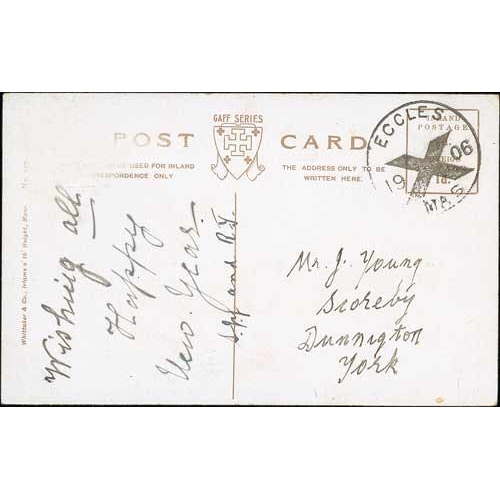 POST CARD
GAFF SERIES
BE USED FOR INLAND
RESPONDENCE ONLY
THE ADDRESS ONLY TO BE
WRITTEN HERE.
INLAND
POSTAGE
1d.
ECCLES
19 06
Whittaker & Co., Manr.
Wishing all
Happy
New Year.
and
Mr J. Young
Scoreby
Dunnington
York